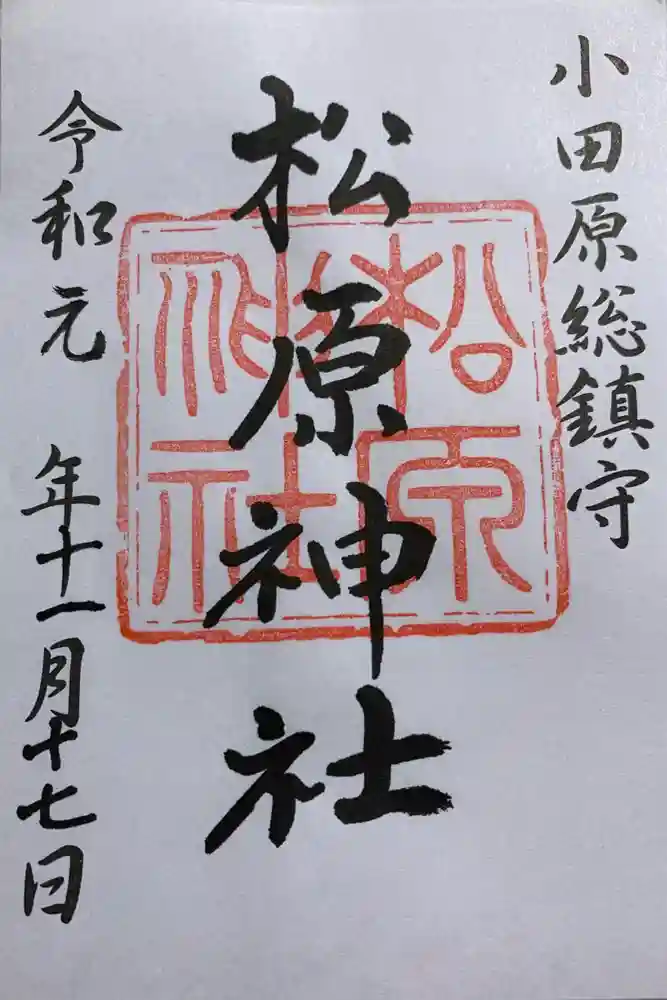 小田原総鎮守
松原神社
松原神社
令和元年十一月十七日